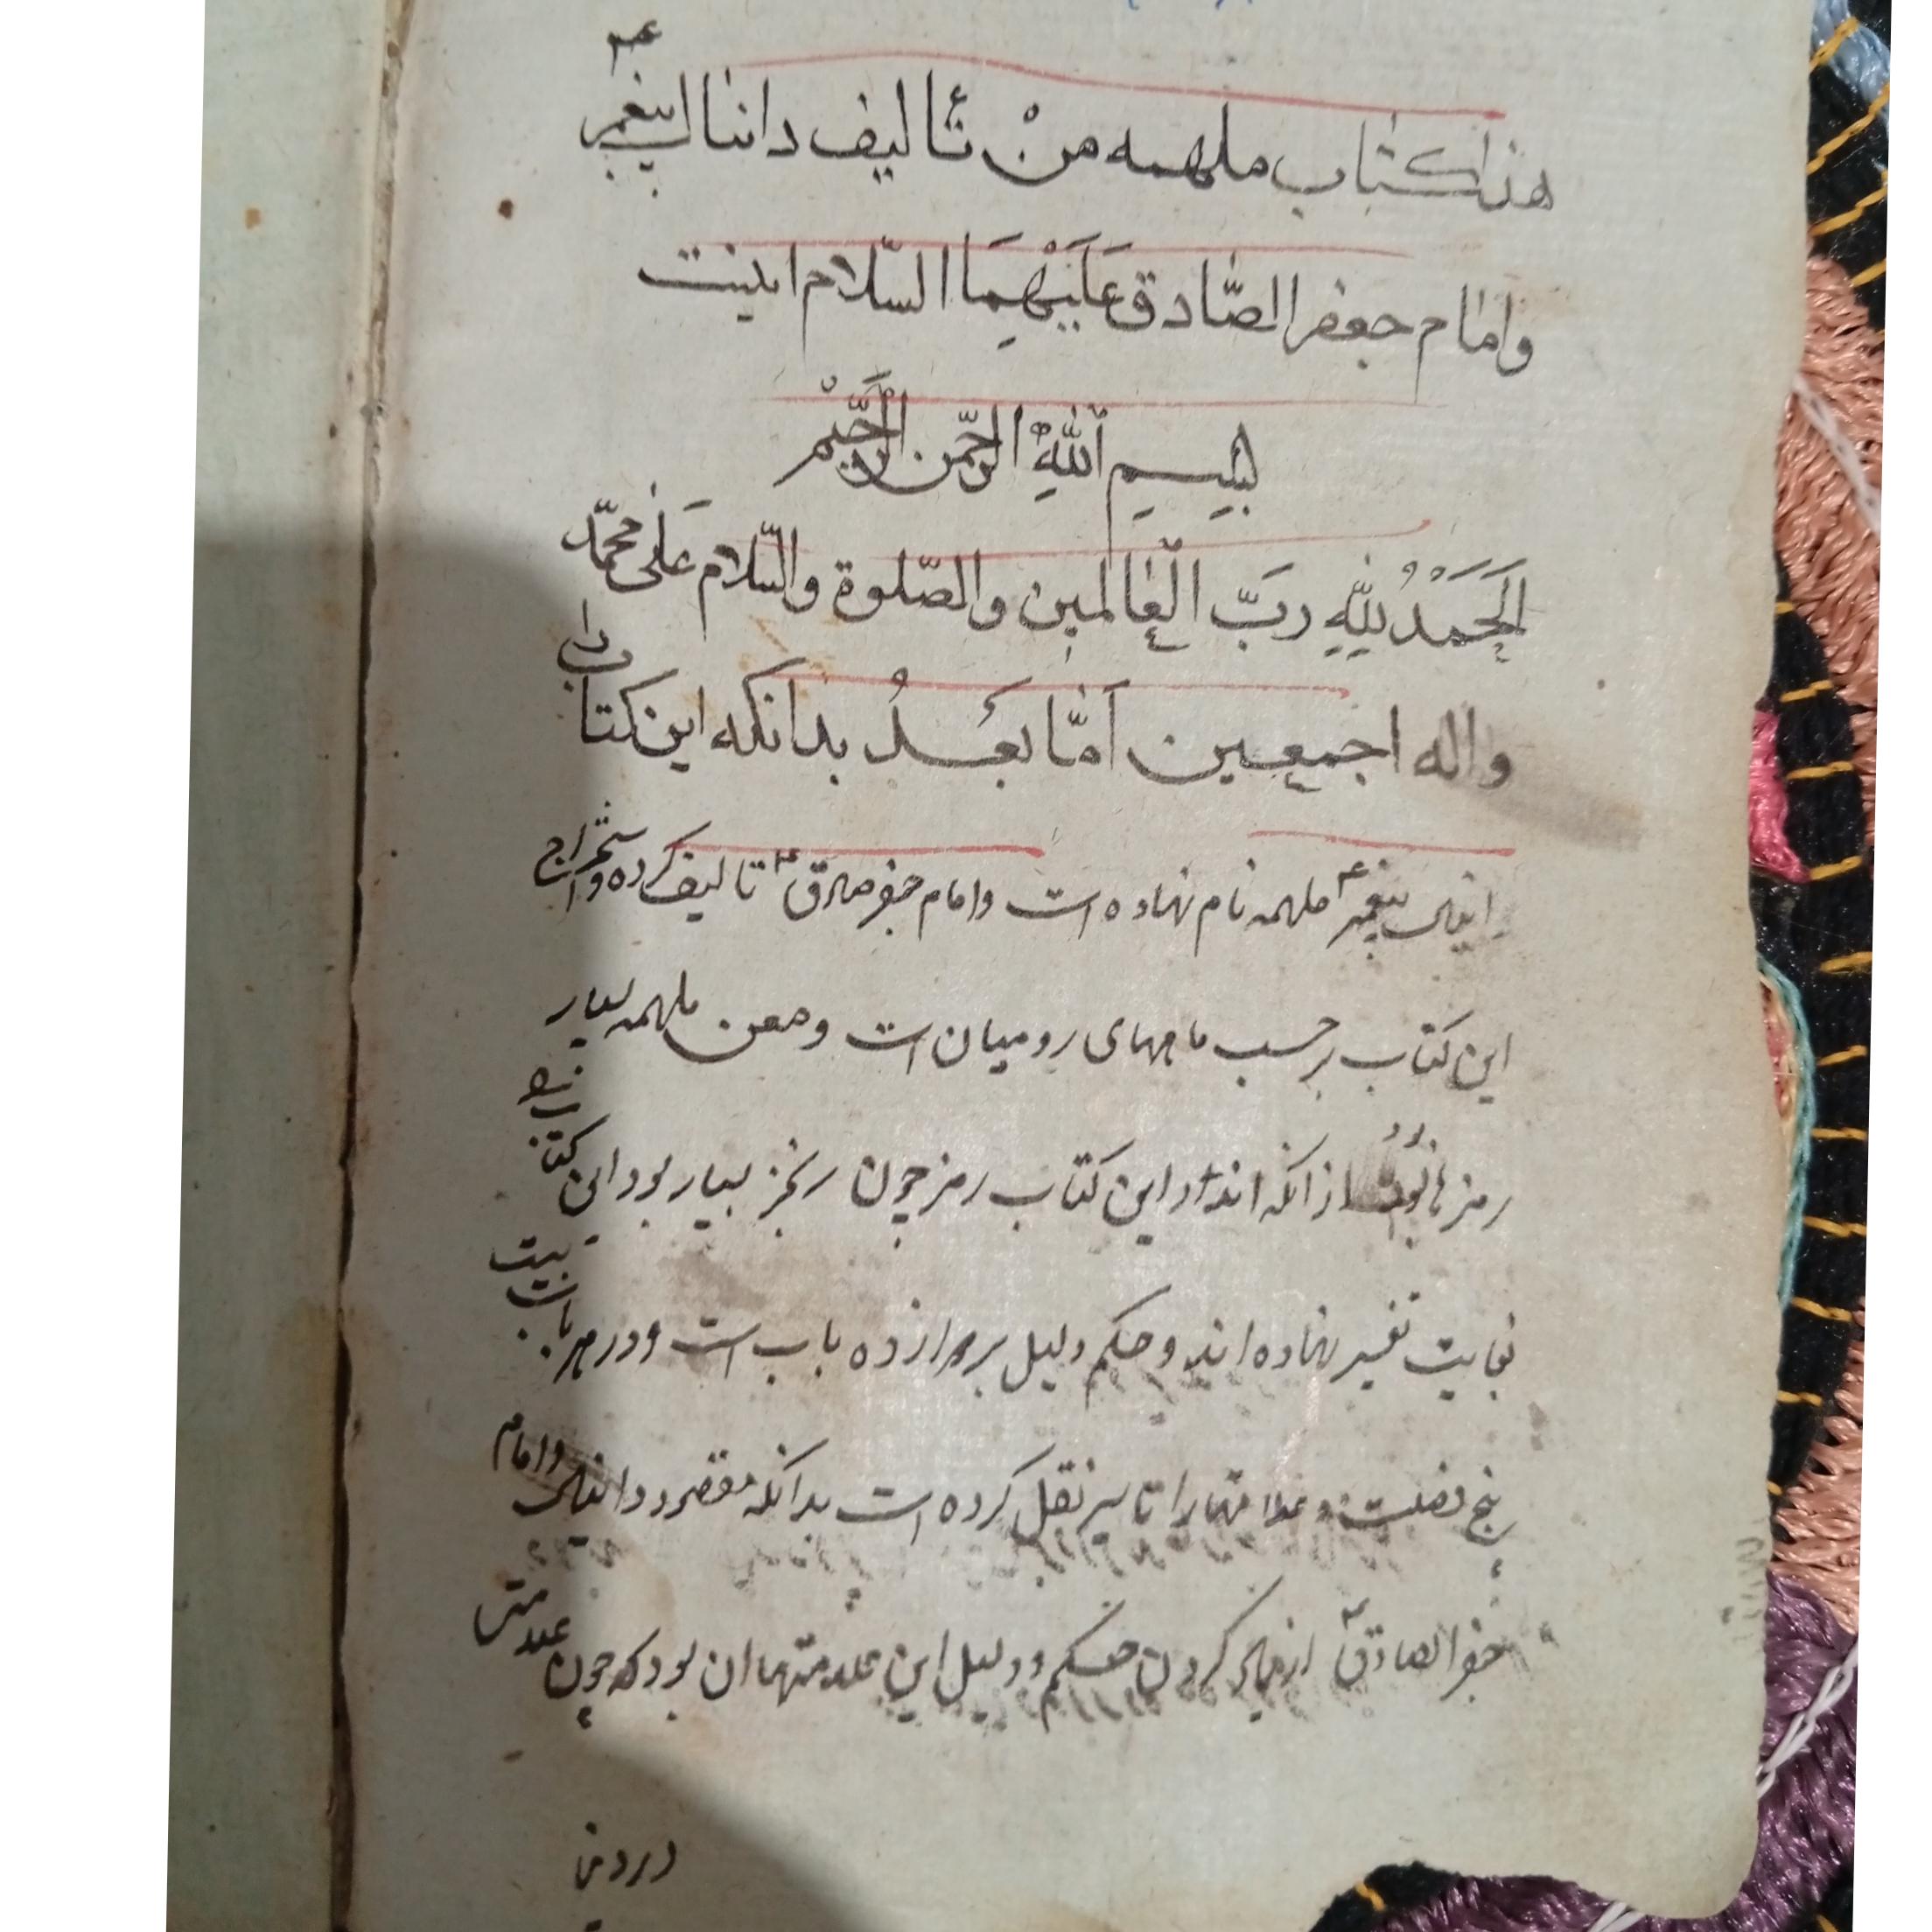 هذا کتاب ملهمه من تالیف دانیال پیغمبر ع
و امام جعفر الصّادق عَلَیْهِمَا السّلام اینست
بِسمِ اللهِ الرحّمن الرَّحیْم
اَلْحَمْدُ للّهِ رَبّ الْعالمین والصّلوة والسّلام عَلی محمّد
واله اجمعین اَمّا بَعدُ بدانکه این کتاب را
دانیال پیغمبر ع ملهمه نام نهاده است و امام جعفر صادق ع تالیف کرده و استخراج
این کتاب بر حسب ماههای رومیان است و معنی ملهمه بسیار
رمزها بُوَد از انکه اندر این کتاب رمز چون بسیار بود این کتاب
بغایت تفسیر نهاده اند و حکم دلیل بر ده باب است و در هر باب
پنج فصلست و علامتها را تا سیر نقل کرده است بدانکه مقصود دانیال و امام
جعفر الصادق ع از یاد کردن حکم و دلیل این علامتها ان بود که چون علامتی
در دنیا